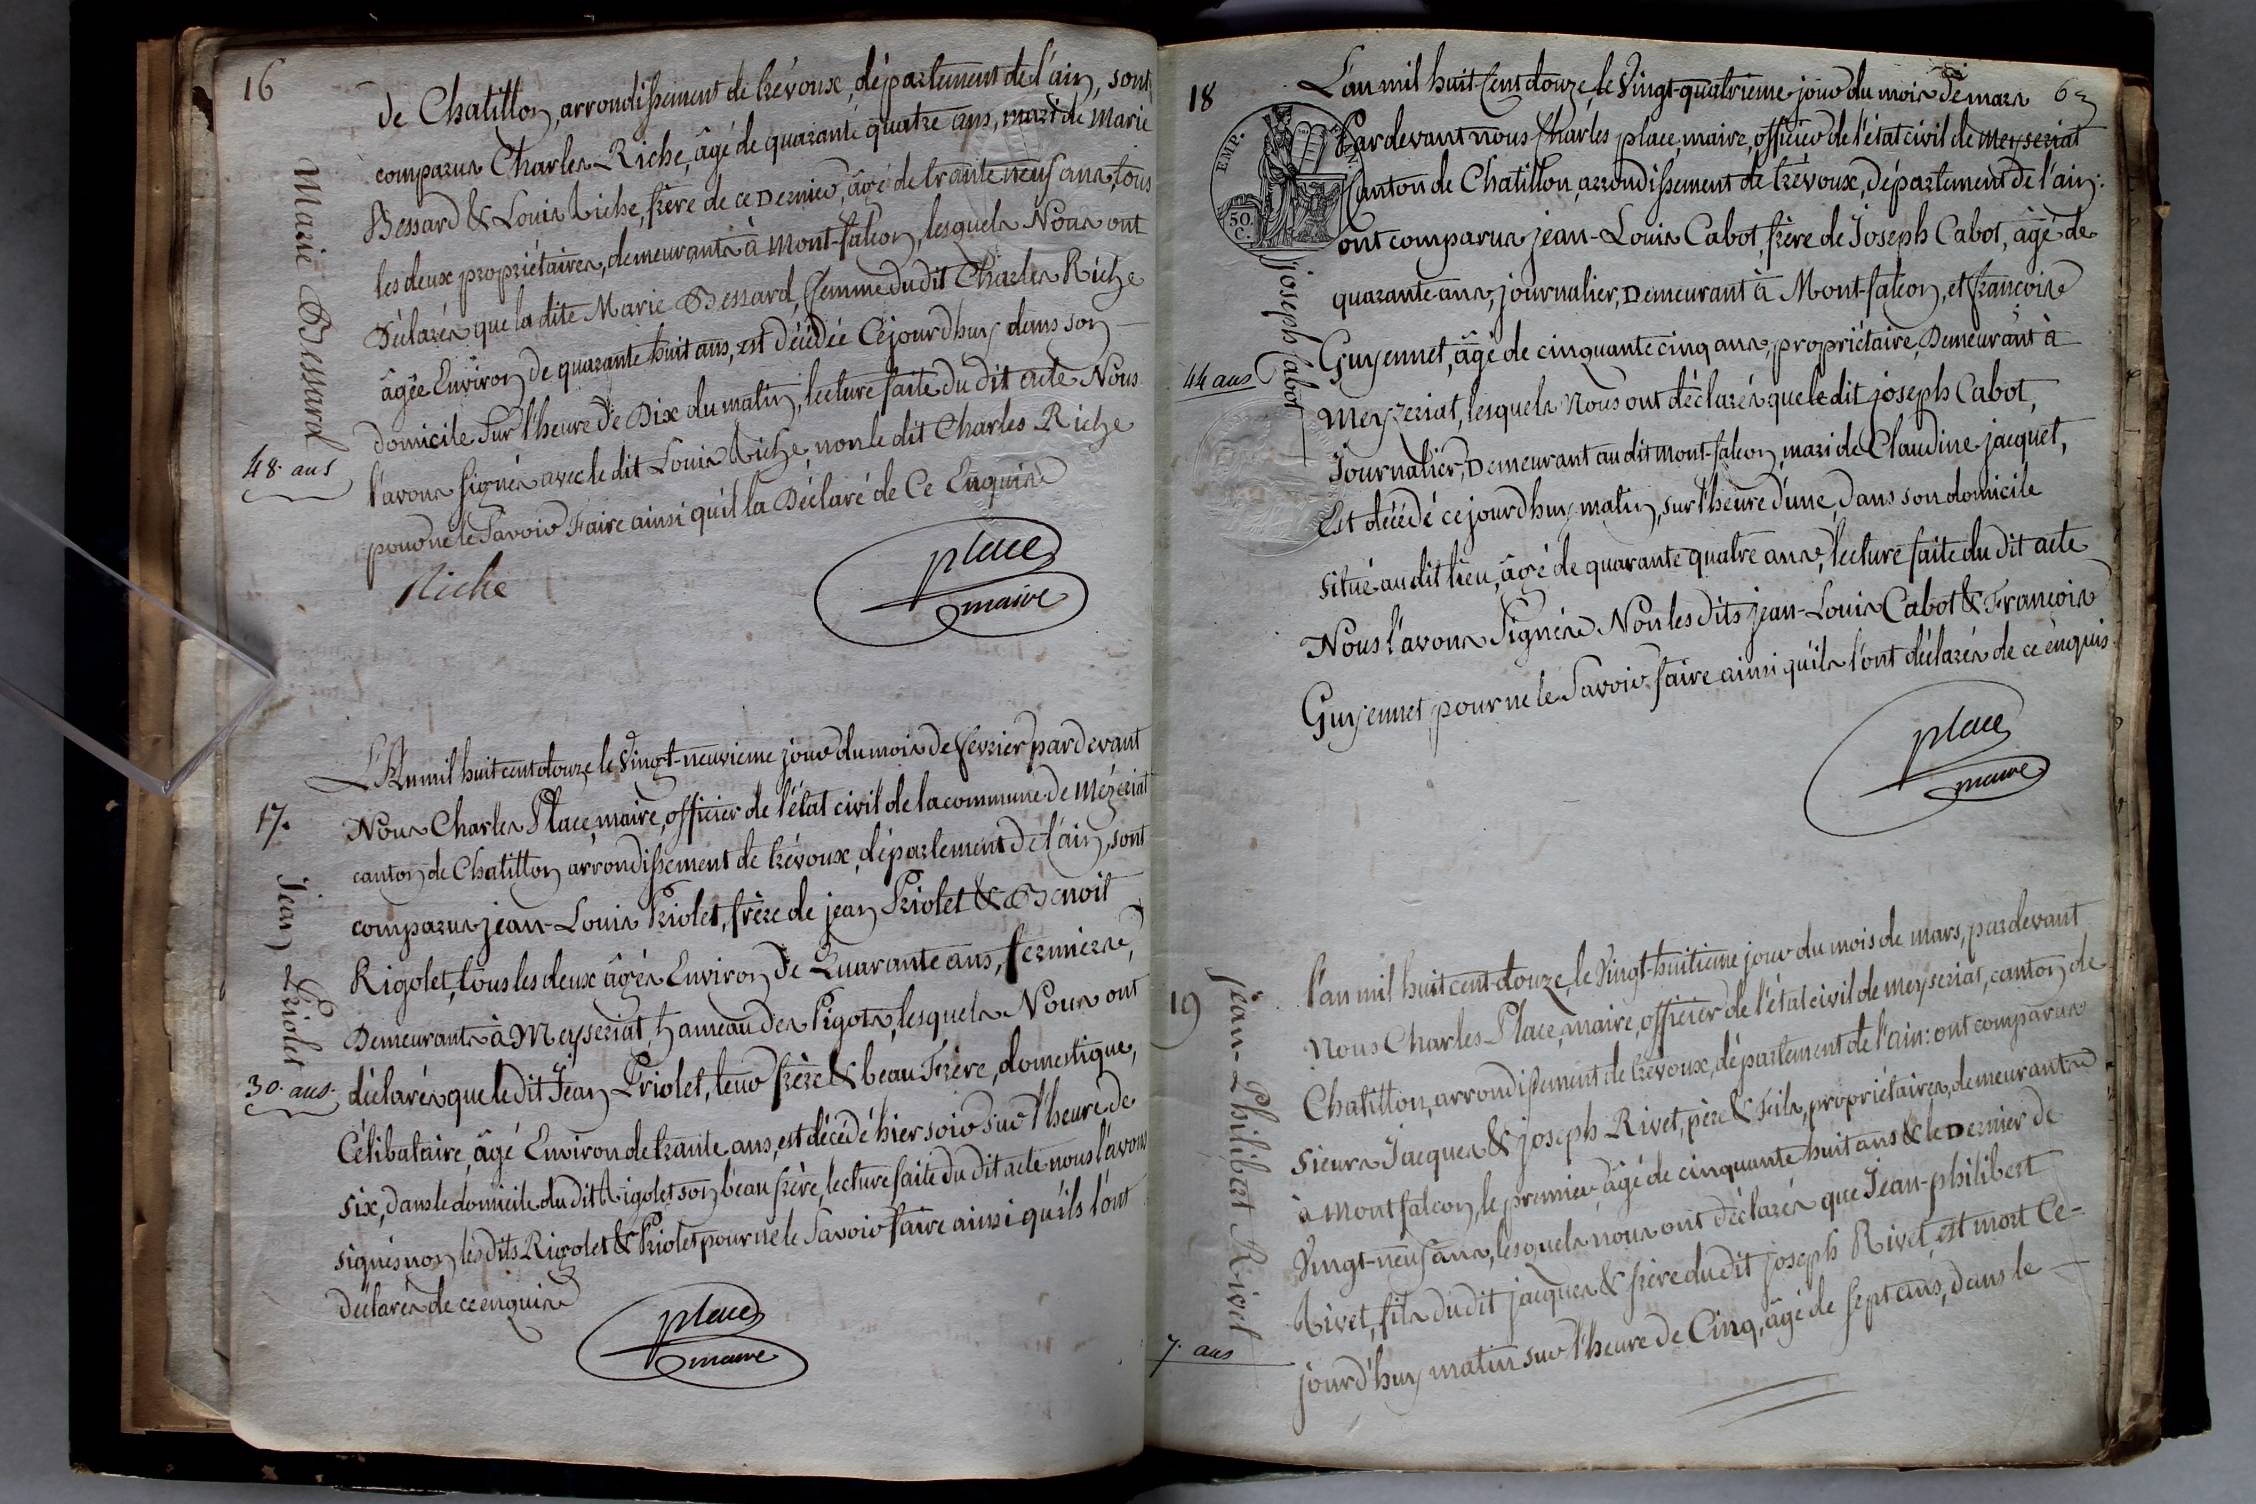 16
de Chatillon, arrondissement de trévoux, département de l'ain, sont
comparus Charles Riche, âgé de quarante quatre ans, mari de Marie
Bessard & Louis Riche, frère de ce Dernier, âgé de trante neuf ans, tous
les deux propriétaires, demeurants à Mont-falcon, lesquels Nous ont
Déclarés que la dite Marie Bessard, femme du dit Charles Riche
âgée Environ de quarante huit ans, est décédée Cejourdhuy dans son
domicile sur l'heure de Dix du matin, lecture faite du dit acte Nous
l'avons signés avec le dit Louis Riche non le dit Charles Riche
pour ne le Savoir Faire ainsi qu'il la Déclaré de Ce Enquis
Marie Bessard
48. ans
Riche
place
maire
17.
Jean Priolet
30. ans.
L'An mil huit cent douze le vingt-neuvieme jour du mois de fevrier pardevant
Nous Charles Place, maire, officier de l'état civil de la commune de Mézériat
canton de Chatillon arrondissement de trévoux, département de l'ain, sont
comparus jean-Louis Priolet, frère de jean Priolet & Benoit
Rigolet, tous les deux âgés Environ de Quarante ans, fermiers,
Demeurants à Meyseriat, hameau des Pigots, lesquels Nous ont
déclarés que le dit Jean Priolet, leur frère & beau Frère, domestique,
Célibataire, âgé Environ de trante ans, est décédé hier soir sur l'heure de
six, dans le domicile du dit Rigolet son beau frère, lecture faite du dit acte nous l'avons
signés non les dits Rigolet & Priolet pour ne le Savoir faire ainsi qu'ils l'ont
déclarés de ce enquis
place
maire
18
EMP.
50.
C.
joseph Cabot
44 ans
L'an mil huit Cent douze, le Vingt-quatrieme jour du mois de mars
Pardevant nous Charles place, maire, officier de l'état civil de Meyseriat
Canton de Chatillon, arrondissement de trévoux, département de l'ain:
ont comparus jean-Louis Cabot, frère de Joseph Cabot, âgé de
quarante ans, journalier, Demeurant à Mont-falcon, et francois
Guyennet, âgé de cinquante cinq ans, propriétaire, Demeurant à
Meyzeriat, lesquels Nous ont déclarés que le dit joseph Cabot,
Journalier, Demeurant au dit Mont-falcon, mari de Claudine jacquet,
Est décédé cejourdhuy matin, sur l'heure d'une, dans son domicile
situé au dit lieu, âgé de quarante quatre ans, lecture faite du dit acte
Nous l'avons Signés Non les dits jean-Louis Cabot & Francois
Guyennet pour ne le Savoir faire ainsi qu'ils l'ont déclarés de ce enquis
place
maire
19
jean-Philibat Rivet
7. ans
l'an mil huit cent-douze, le Vingt-huitieme jour du mois de mars, pardevant
Nous Charles Place, maire, officier de l'état civil de meyseriat, canton de
Chatillon, arrondissement de trévoux, département de l'ain: ont comparus
sieurs Jacques & joseph Rivet, père & fils, propriétaires, demeurants
à Montfalcon, le premier âgé de cinquante huit ans & le Dernier de
Vingt-neuf ans, lesquels nous ont déclarés que Jean-philibert
Rivet, fils du dit jacques & frère du dit joseph Rivet, est mort Ce-
jourd'huy matin sur l'heure de Cinq, âgé de sept ans, dans le